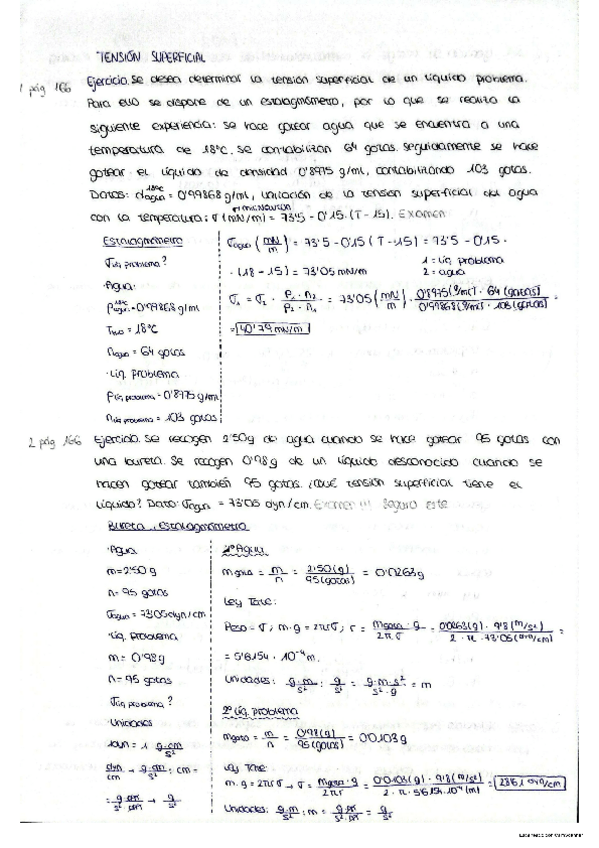 TENSIÓN SUPERFICIAL
1 pág 166 Ejercicio. Se desea determinar la tensión superficial de un líquido problema.
Para ello se dispone de un estalagmómetro, por lo que se realiza la
siguiente experiencia: se hace gotear agua que se encuentra a una
temperatura de 18ºC. Se contabilizan 64 gotas. Seguidamente se hace
gotear el líquido de densidad 0'8975 g/ml, contabilizando 103 gotas.
Datos: d agua 18ºC = 0'99868 g/ml, variación de la tensión superficial del agua
con la temperatura: σ (mN/m) = 73'5 - 0'15 · (T - 15). Examen
Estalagmómetro
σ líq problema?
· Agua:
ρ agua 18ºC = 0'99868 g/ml
T H₂O = 18ºC
n agua = 64 gotas
· Líq. problema
ρ líq problema = 0'8975 g/ml
n líq problema = 103 gotas
σ agua (mN/m) = 73'5 - 0'15 (T - 15) = 73'5 - 0'15 ·
· (18 - 15) = 73'05 mN/m
1 = líq. problema
2 = agua
σ₁ = σ₂ · ρ₁ · n₂ / ρ₂ · n₁ = 73'05 (mN/m) · 0'8975 (g/ml) · 64 (gotas) / 0'99868 (g/ml) · 103 (gotas) =
= 40'79 mN/m
2 pág 166 Ejercicio. Se recogen 2'50g de agua cuando se hace gotear 95 gotas con
una bureta. Se recogen 0'98g de un líquido desconocido cuando se
hacen gotear también 95 gotas. ¿Qué tensión superficial tiene el
líquido? Dato: σ agua = 73'05 dyn/cm. Examen!!! Seguro este
Bureta, estalagmómetro
· Agua
m = 2'50 g
n = 95 gotas
σ agua = 73'05 dyn/cm
· Líq. problema
m = 0'98g
n = 95 gotas
σ líq problema?
Unidades
1 dyn = 1 g·cm/s²
dyn/cm → g·cm/s² : cm =
= g·cm/s²·cm → g/s²
1º Agua
m gota = m/n = 2'50 (g) / 95 (gotas) = 0'0263g
Ley Tate:
Peso = σ; m·g = 2πrσ; r = m gota · g / 2πσ = 0'0263 (g) · 9'8 (m/s²) / 2 · π · 73'05 (dyn/cm) =
= 5'6154 · 10⁻⁴ m.
Unidades: g·m/s² : g/s² = g·m·s²/s²·g = m
2º Líq. problema
m gota = m/n = 0'98 (g) / 95 (gotas) = 0'0103g
Ley Tate:
m·g = 2πrσ → σ = m gota · g / 2πr = 0'0103 (g) · 9'8 (m/s²) / 2 · π · 5'6154 · 10⁻⁴ (m) = 28'61 dyn/cm
Unidades: g·m/s² : m = g·m/s²·m = g/s²